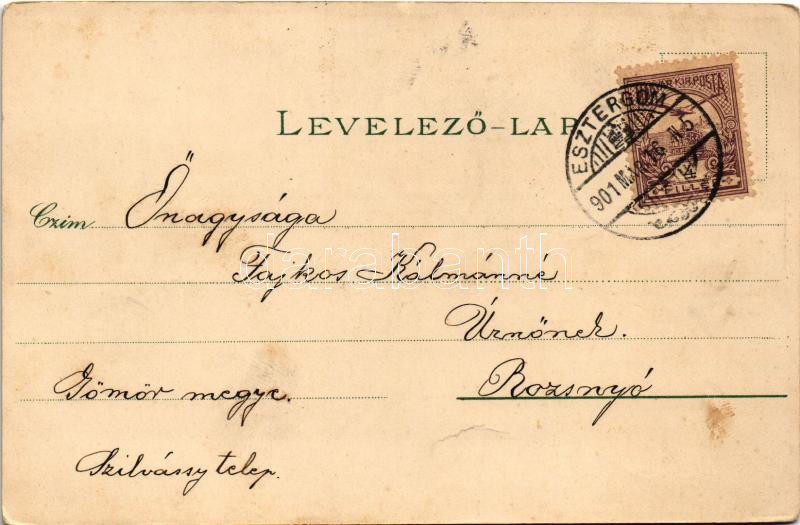 MAGYAR KIR. POSTA
LEVELEZŐ-LAP
ESZTERGOM
901 MÁJ. 16. N. 5
FILLÉR
Czim Őnagysága
Fajkos Kálmánné
Úrnőnek.
Gömör megye. Rozsnyó
Szilvássy telep.
darabanth